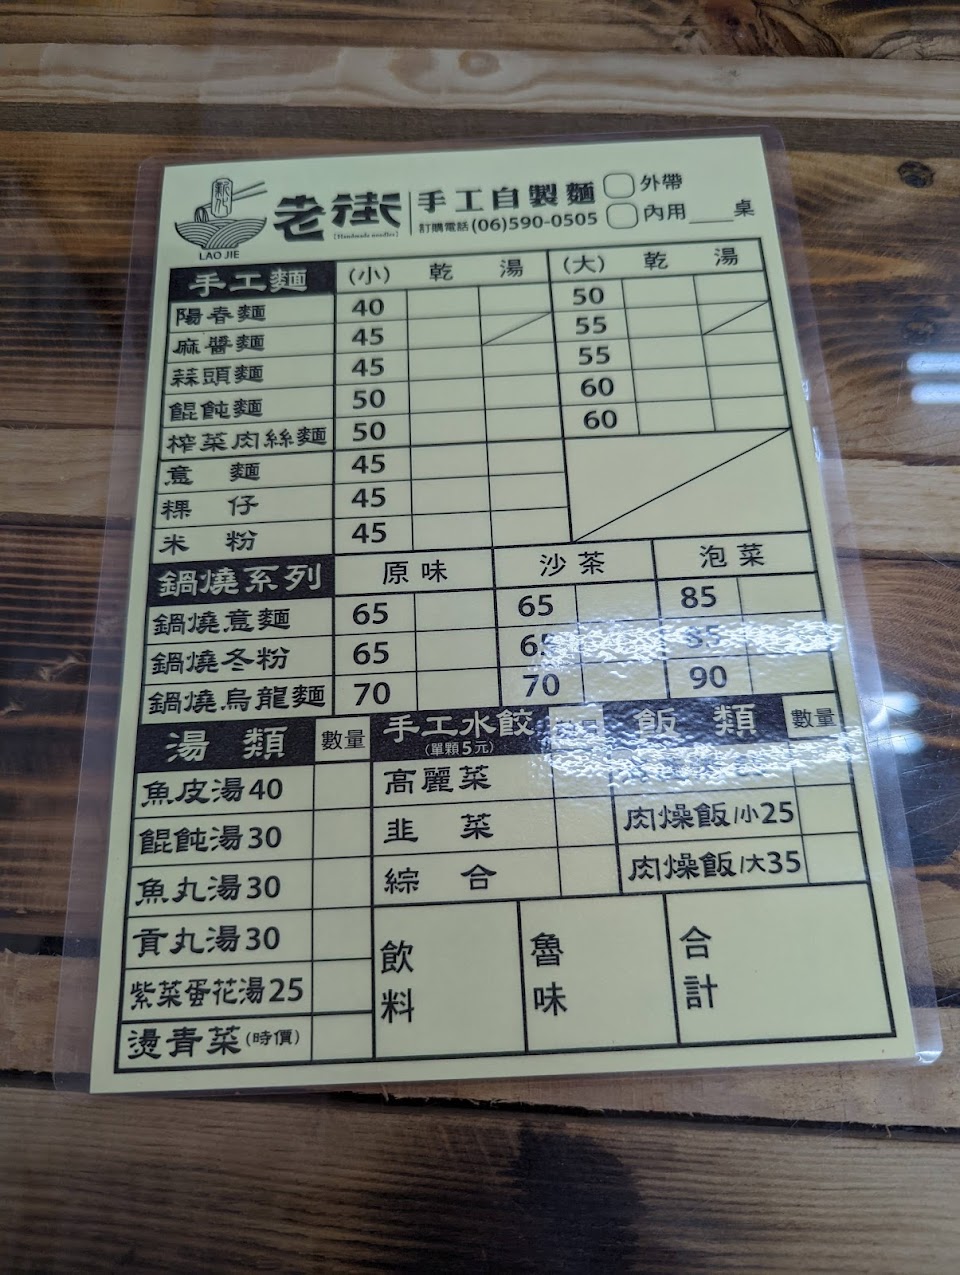 新化
LAO JIE
老街
(Handmade noodles)
手工自製麵
訂購電話(06)590-0505
外帶
內用____桌
手工麵 (小) 乾 湯 (大) 乾 湯
陽春麵 40 50
麻醬麵 45 55
蒜頭麵 45 55
餛飩麵 50 60
榨菜肉絲麵 50 60
意麵 45
粿仔 45
米粉 45
鍋燒系列 原味 沙茶 泡菜
鍋燒意麵 65 65 85
鍋燒冬粉 65 65 85
鍋燒烏龍麵 70 70 90
湯類 數量 手工水餃 飯類 數量
(單顆5元)
魚皮湯40 高麗菜
餛飩湯30 韭菜 肉燥飯/小25
魚丸湯30 綜合 肉燥飯/大35
貢丸湯30 飲料 魯味 合計
紫菜蛋花湯25
燙青菜(時價)